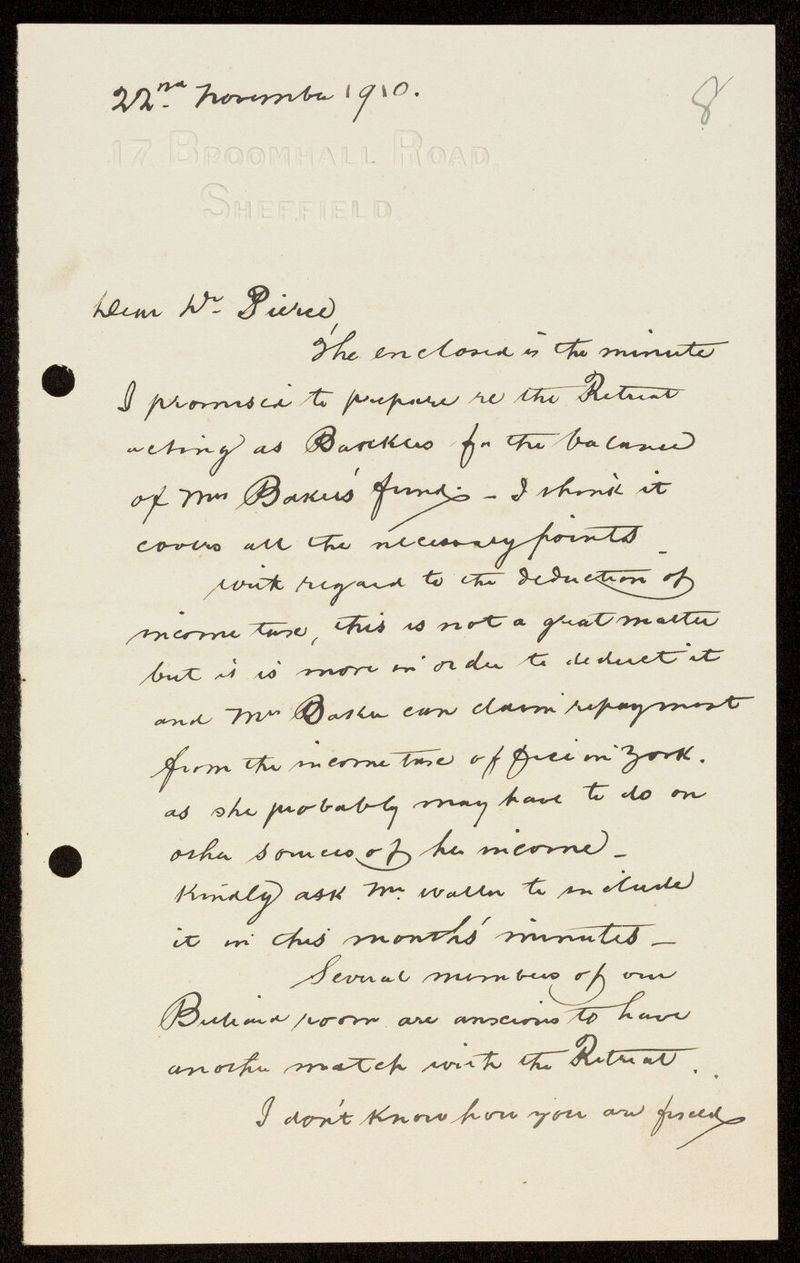 22nd. November 1910.
8
17, BROOMHALL ROAD,
SHEFFIELD.
Dear Dr. Pierce,
The enclosed is the minute
I promised to prepare re the Retreat
acting as Bankers for the balance
of Mrs Baker's funds. - I think it
covers all the necessary points -
with regard to the deduction of
income tax, this is not a great matter
but it is more in order to deduct it
and Mrs Baker can claim repayment
from the income tax office in York.
as she probably may have to do on
other sources of her income -
Kindly ask Mr. Waller to include
it in this months' minutes -
Several members of our
Billiard room are anxious to have
another match with the Retreat.
I don't know how you are fixed